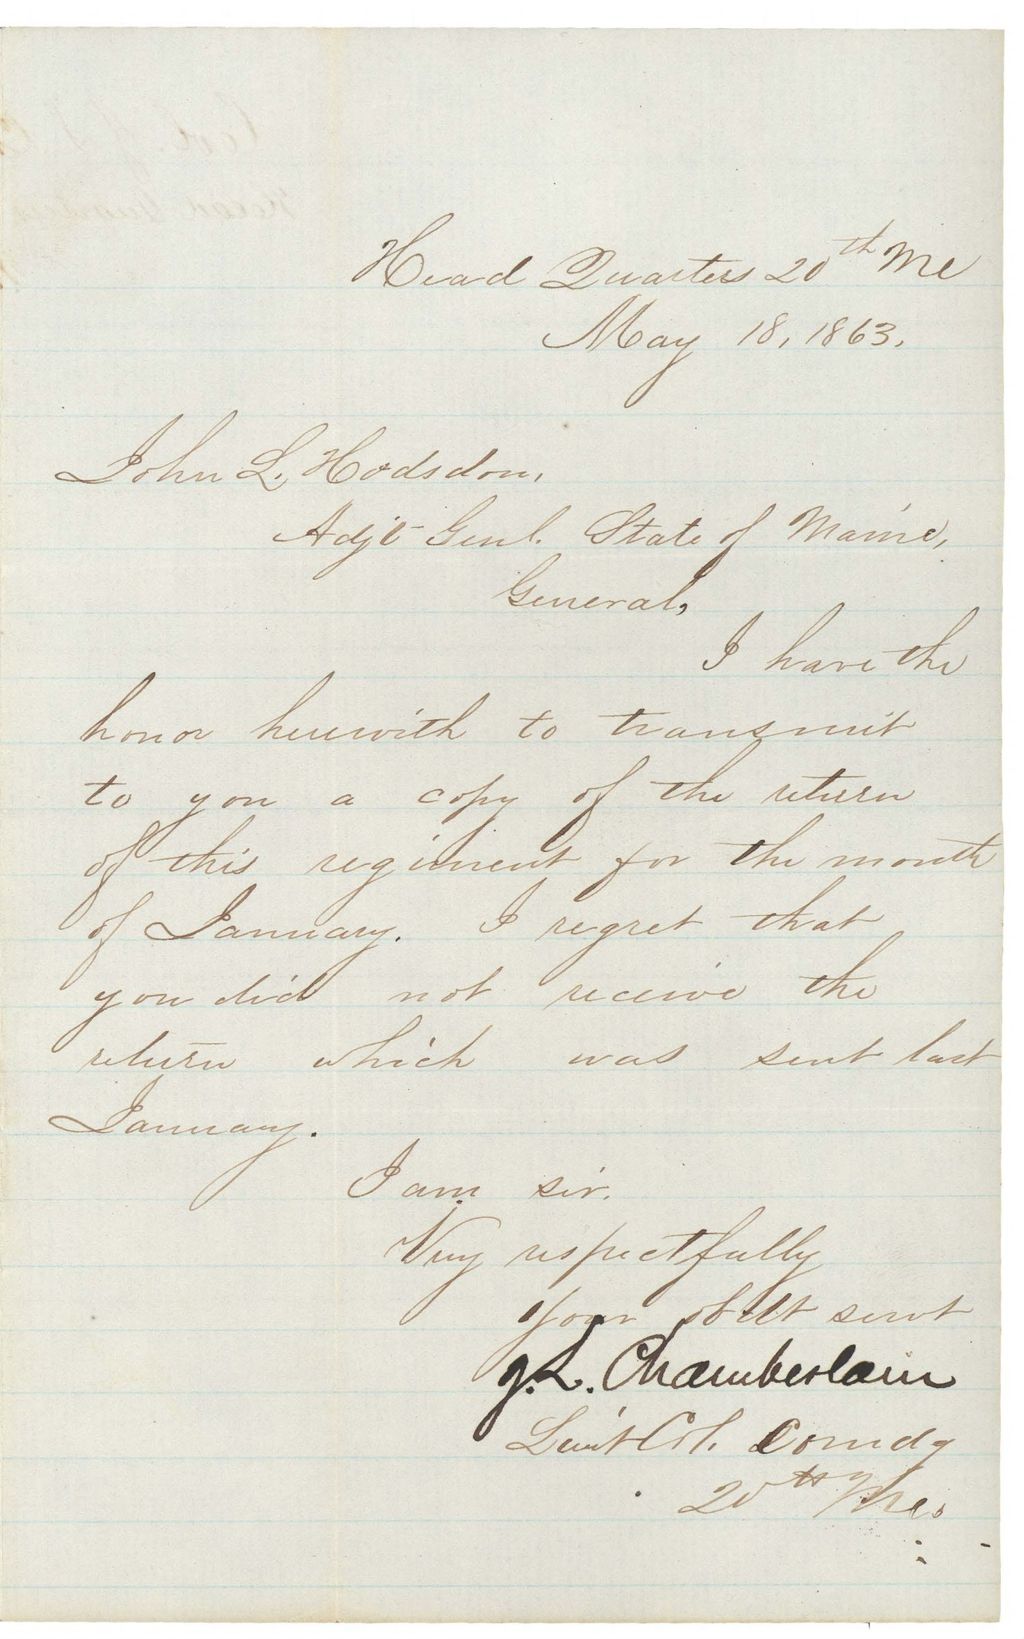 Head Quarters 20th Me
May 18, 1863.
John L. Hodsdon,
Adjt Genl. State of Maine,
General,
I have the
honor herewith to transmit
to you a copy of the return
of this regiment for the month
of January. I regret that
you did not receive the
return which was sent last
January.
I am sir.
Very respectfully
Your obdt servt
J. L. Chamberlain
Lieut Col. Comdg
20th Me.